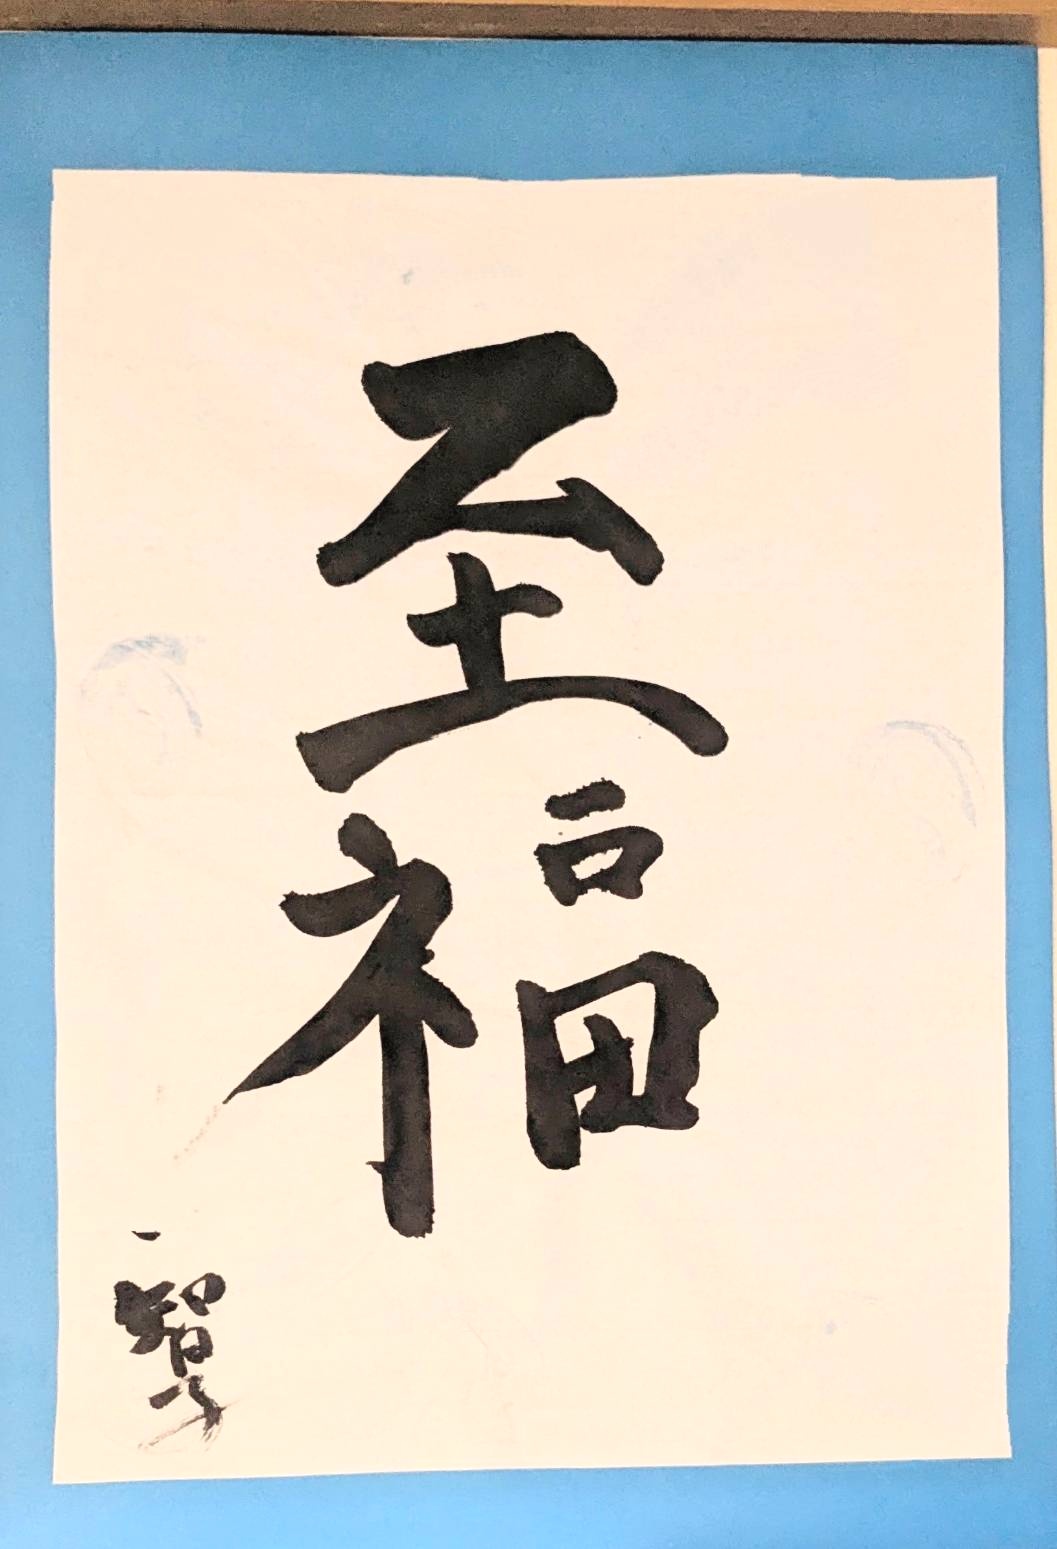 至福
一智子